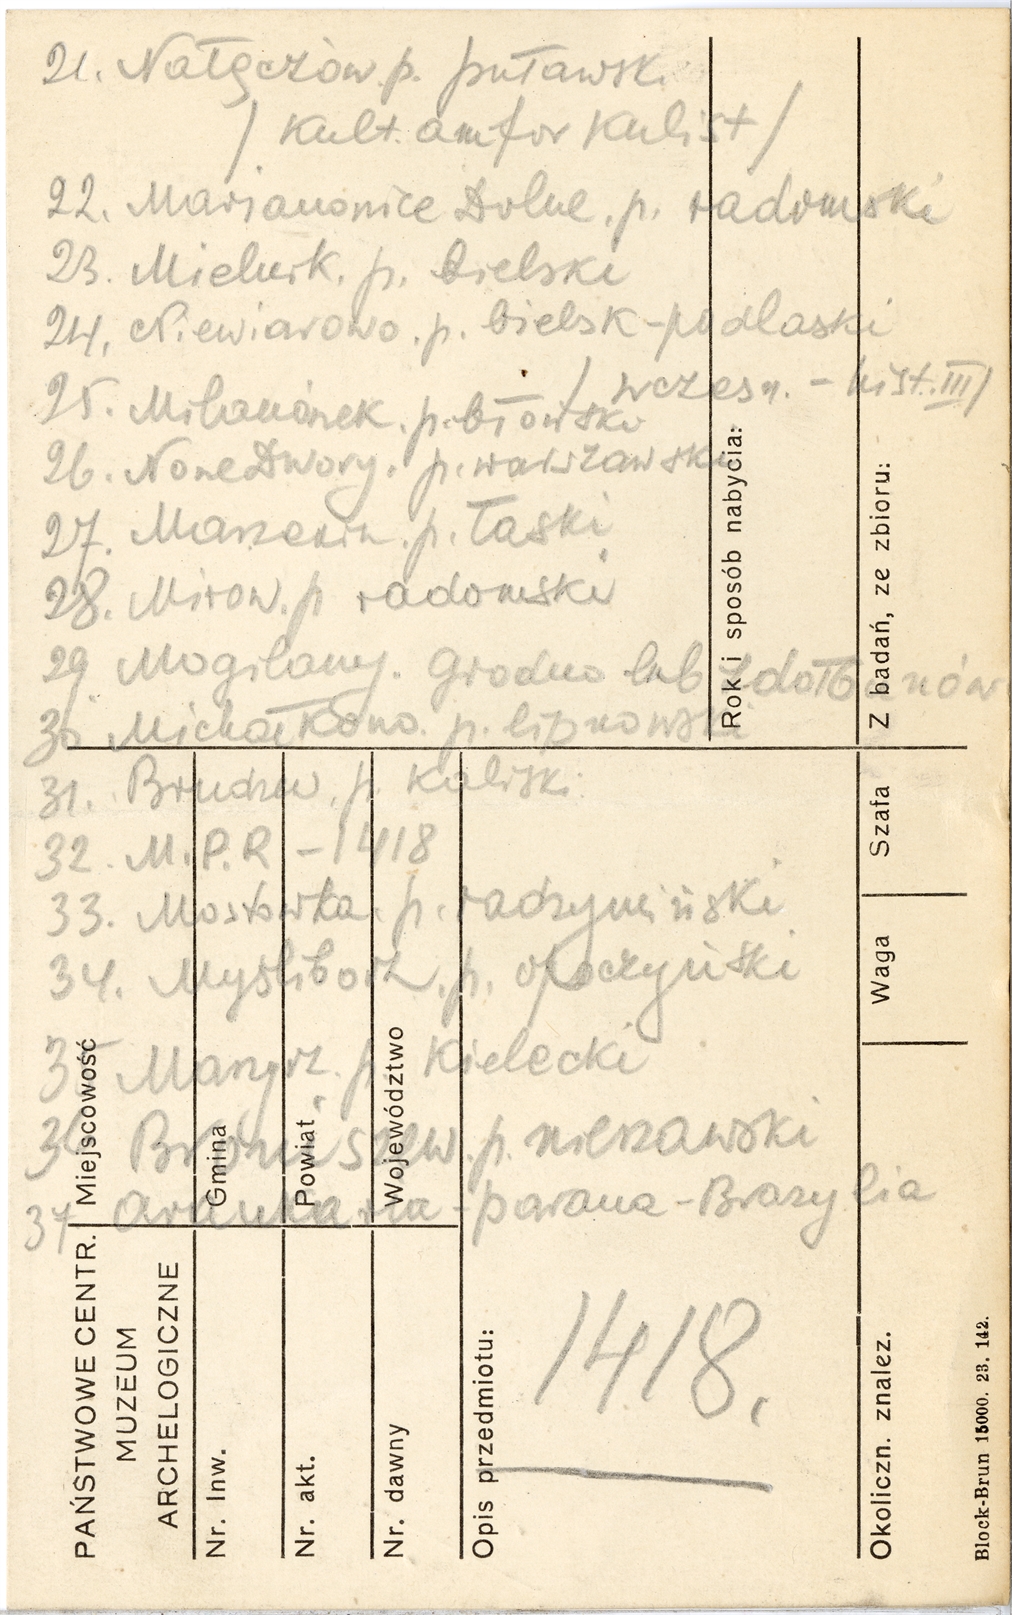 21. Nałęczów. p. puławsk.
/ Kult. amfor Kulist /
22. Marianowice Dolne. p. radomski
23. Mielnik. p. bielski
24. Niewiarowo. p. bielsk-podlaski
/ wczesn. - hist. III /
25. Milanówek. p. błoński
26. Nowe Dwory. p. warszawski
27. Marzenin. p. Łaski
28. Mirow. p radomski
29. Mogilany. Grodno lub Zdołbunów
30 Michałkowo. p. lipnowski
31. Brudzew. p. Kaliski
32. M.P.R - 1418
33. Mostówka. p. radzymiński
34. Myślibórz. p. opoczyński
35 p. Kielecki
36 Broniszew. p. nieszawski
37 Araukaria - parana - Brazylia
1418.
PAŃSTWOWE CENTR.
MUZEUM
ARCHELOGICZNE
Miejscowość
Nr. Inw.
Gmina
Nr. akt.
Powiat
Nr. dawny
Województwo
Opis przedmiotu:
Rok i sposób nabycia:
Okoliczn. znalez.
Waga
Szafa
Z badań, ze zbioru:
Block-Brun 15000. 23. 142.